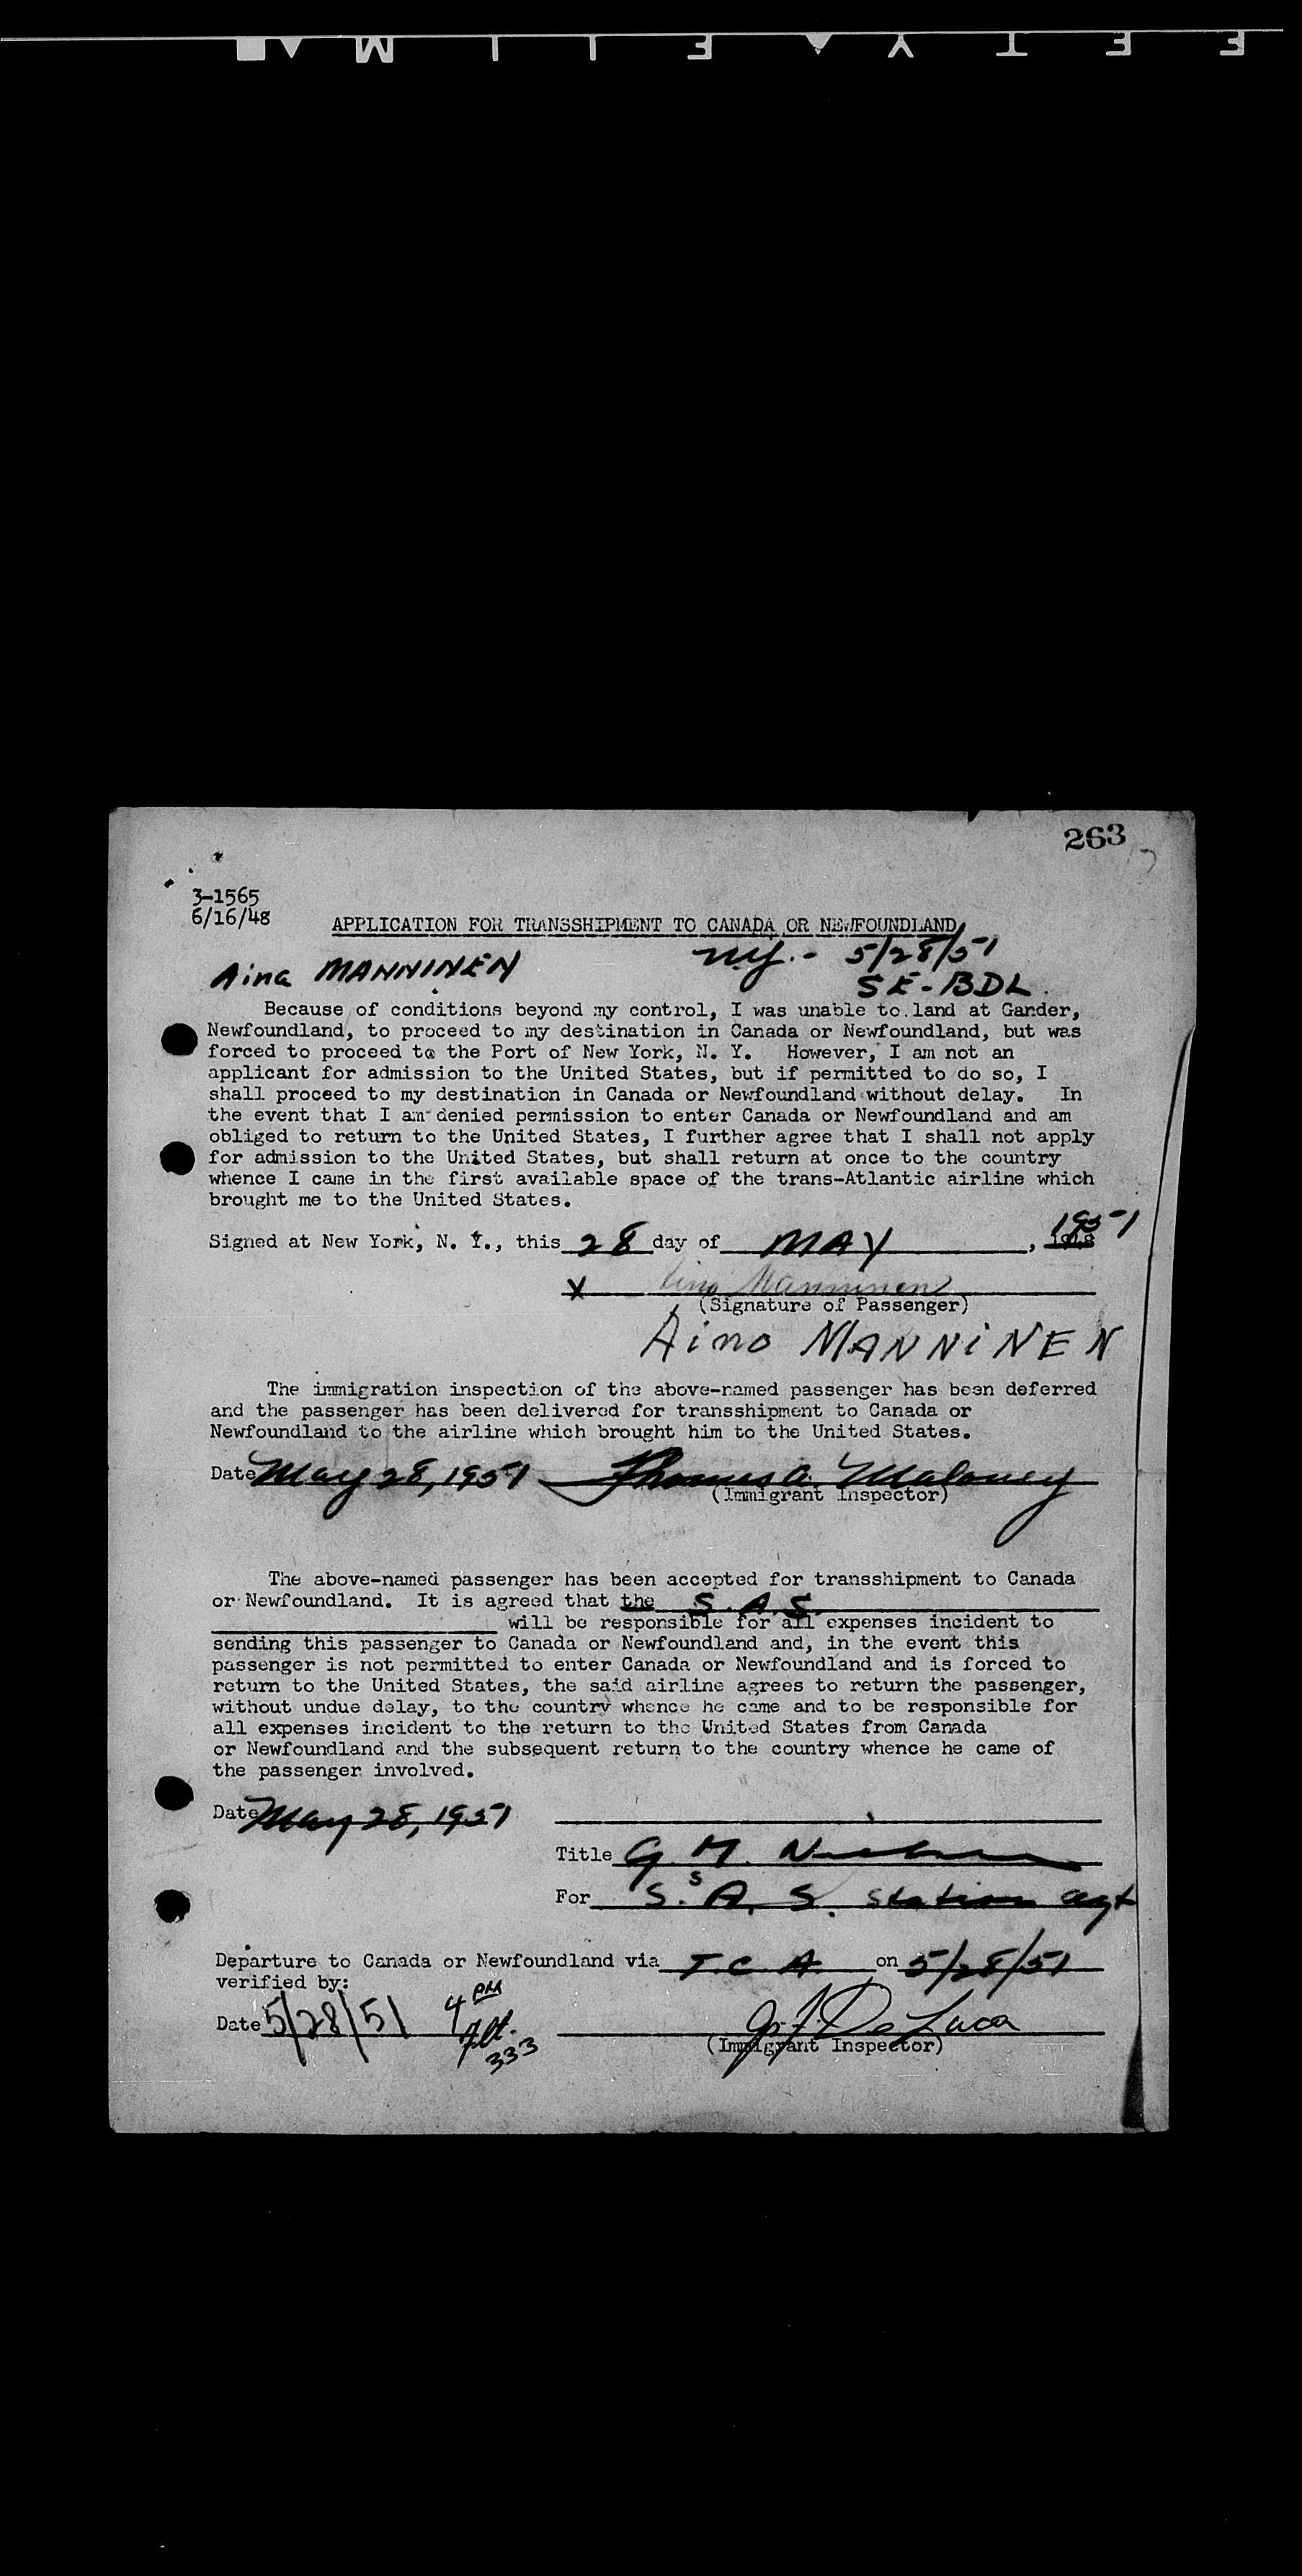 263
3-1565
6/16/48
APPLICATION FOR TRANSSHIPMENT TO CANADA OR NEWFOUNDLAND
N.Y. - 5/28/51
Aina MANNINEN
SE-BDL
Because of conditions beyond my control, I was unable to land at Gander,
Newfoundland, to proceed to my destination in Canada or Newfoundland, but was
forced to proceed to the Port of New York, N. Y. However, I am not an
applicant for admission to the United States, but if permitted to do so, I
shall proceed to my destination in Canada or Newfoundland without delay. In
the event that I am denied permission to enter Canada or Newfoundland and am
obliged to return to the United States, I further agree that I shall not apply
for admission to the United States, but shall return at once to the country
whence I came in the first available space of the trans-Atlantic airline which
brought me to the United States.
Signed at New York, N. Y., this 28 day of MAY, 1951
X Aino Manninen
(Signature of Passenger)
Aino MANNiNEN
The immigration inspection of the above-named passenger has been deferred
and the passenger has been delivered for transshipment to Canada or
Newfoundland to the airline which brought him to the United States.
Date May 28, 1951 Thomas A. Maloney
(Immigrant Inspector)
The above-named passenger has been accepted for transshipment to Canada
or Newfoundland. It is agreed that the S.A.S.
will be responsible for all expenses incident to
sending this passenger to Canada or Newfoundland and, in the event this
passenger is not permitted to enter Canada or Newfoundland and is forced to
return to the United States, the said airline agrees to return the passenger,
without undue delay, to the country whence he came and to be responsible for
all expenses incident to the return to the United States from Canada
or Newfoundland and the subsequent return to the country whence he came of
the passenger involved.
Date May 28, 1951
Title G M.
For S.A.S. Station agt
Departure to Canada or Newfoundland via T.C.A. on 5/28/51
verified by:
Date 5/28/51 4 PM
Flt.
333
De Luca
(Immigrant Inspector)